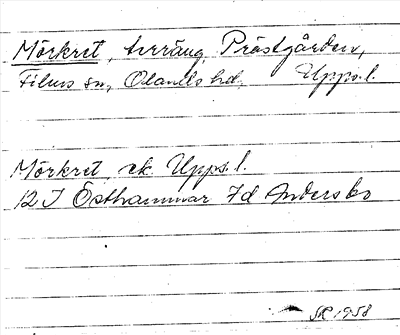 Mörkret, terräng, Prästgården,
Films sn, Olands hd, Upps. l.
Mörkret, ek. Upps. l.
12 I Östhammar 7d Andersbo
1958